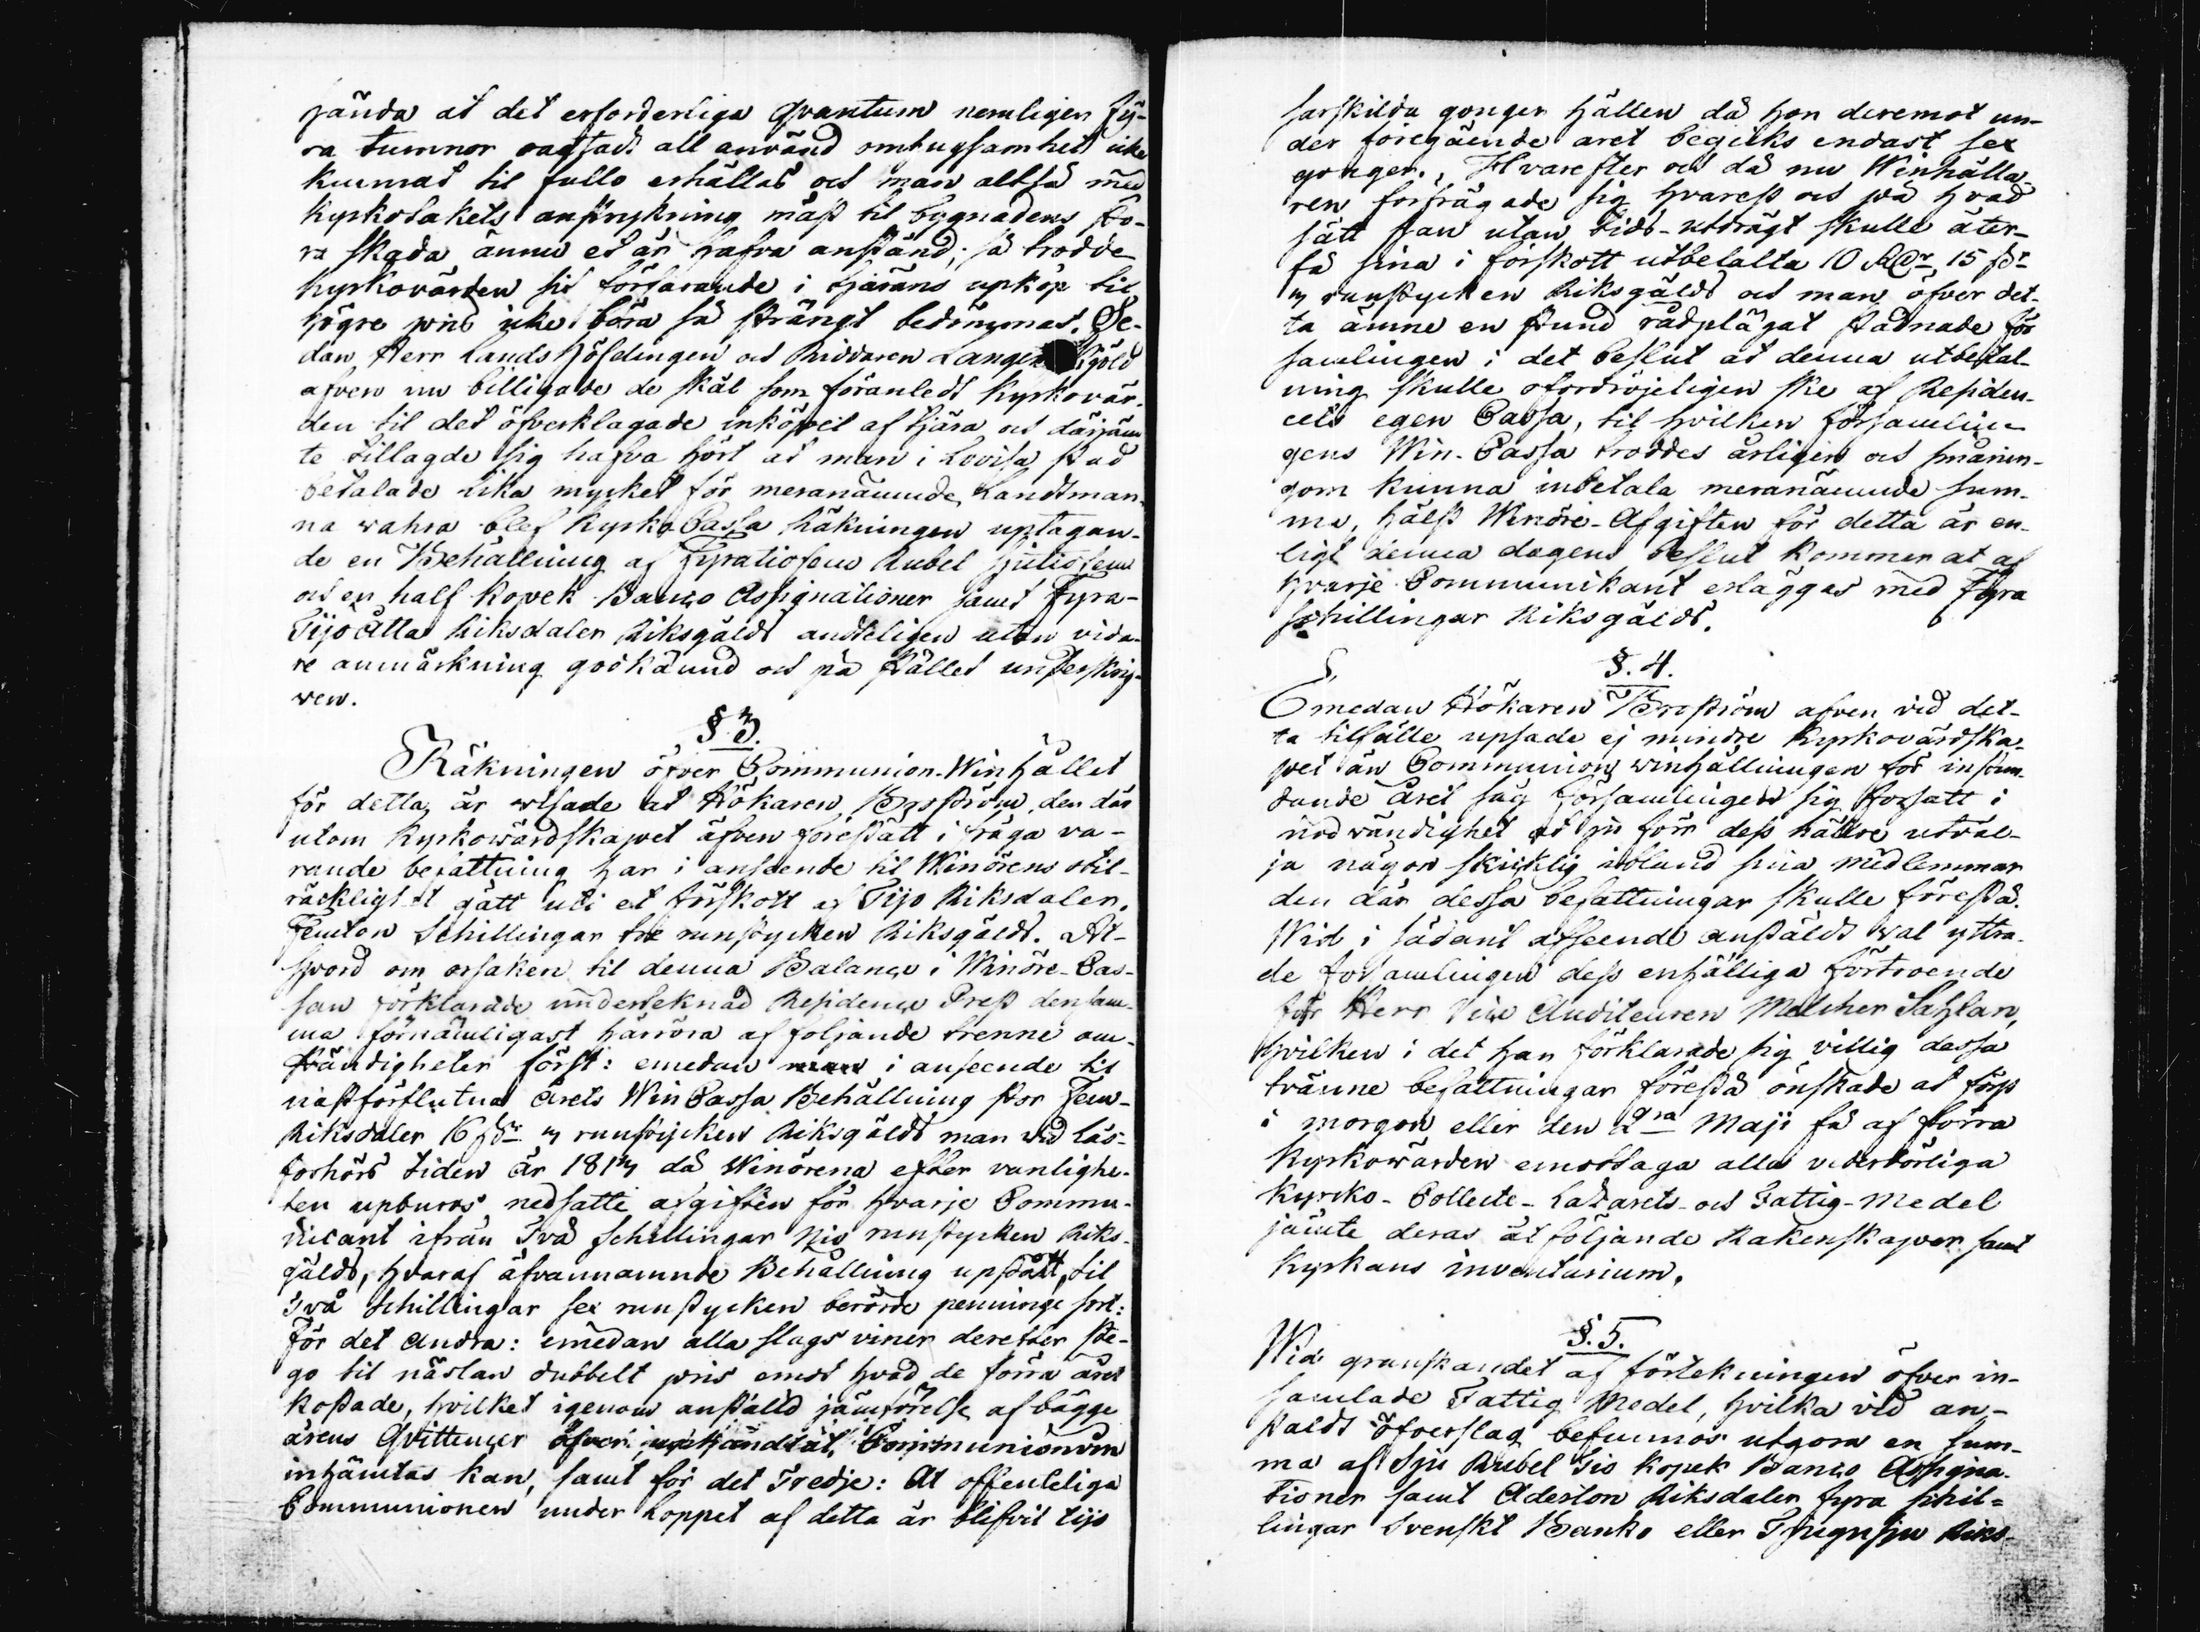 hända at det erforderliga Qvantum nemligen fy-
ra tunnor oagtadt all använd omtugsamhet icke
kunnat til fullo erhållas och man altså med
kyrkotakets anstrykning måst til bygnadens sto-
ra skada ännu et år hafva anstånd; så trodde
kyrkovärden sit förfarande i tjärans upköp til
högre pris icke böra så strängt bedömmas. Se-
dan Herr Landshöfdingen och Riddaren
afven nu billigade de skäl som föranledt kyrkovär-
den til det öfverklagade inköpet af tjära och därjäm-
te tillagde sig hafva hört at man i Lovisa stad
betalade lika mycket för meranämnde Landtman-
na wahra blef Kyrko Cassa Räkningen uptagan-
de en Behållning af Fyratiofem Rubel sjutiofem
och en half kopek Banco Assignationer samt Fyra-
Tijo Åtta Riksdaler Riksgälds andteligen utan vida-
re anmärkning godkännd och på stället underskrif-
wen.
§ 3.
Räkningen öfver Communion-Winhållet
för detta år wisade at Hökaren Broström, den där
utom kyrkowärdskapet äfven förestått i fråga va-
rande befattning har i anseende til Winörens otil-
räcklighet gått uti et förskott af Tijo Riksdaler.
Femton Schillingar tre runstycken Riksgälds. At-
spord om orsaken til denna Balance i Winöre-Cas-
san förklarade undertecknad Residence Prest densam-
ma förnämligast härröra af följande trenne om-
ständigheter först: emedan man i anseende til
nästförflutna årets Win Cassa Behållning stor Fem-
Riksdaler 16 sk 3 runstycken Riksgälds man vid Läs-
förhörs tiden år 1813 då Winörena efter vanlighe-
ten upburos nedsatte afgiften för hvarje Commu-
nicant ifrån Två Schillingar Nio runstycken Riks-
gälds, hvaraf äfvannämnde Behållning upstått, til
Två Schillingar sex runstycken berörde penninge sort:
För det andra: emedan alla slags viner derefter ste-
go til nästan dubbelt pris emot hvad de förra året
kostade, hvilket igenom anstäld jämförelse af bägge
årens Qvittencer öfver Communionvin
inhämtas kan, samt för det Tredje: At offenteliga
Communionen under loppet af detta år blifvit tijo
särskilda gonger hållen då hon deremot un-
der föregående året begicks endast sex
gonger., Hvarefter och då nu Winhålla-
ren förfrågade sig hvarest och på hvad
sätt han utan tids-utdrägt skulle åter-
få sina i förskott utbetalta 10 Rdr 15 sk
3 runstycken Riksgälds och man öfver det-
ta ämne en stund rådplägat stadnade För
samlingen i det beslut at denna utbetal-
ning skulle ofördröjeligen ske af Residen-
cets egen Cassa, til hvilken församlin-
gens Win-Cassa troddes årligen och smånin-
gom kunna inbetala meranämnde sum-
ma, hälst Winöre-Afgiften för detta år en-
ligt denna dagens beslut kommer at af
hvarje Communikant erläggas med Fyra
Schillingar Riksgälds.
§. 4.
Emedan Hökaren Broström afven vid det-
ta tilfälle upsade ej mindre kyrkovärdska-
pet än Communion winhållningen för inståun-
dande året såg församlingen sig försatt i
nödvändighet at ju förr dess hällre utväl-
ja någon skicklig ibland sina medlemmar
den där dessa befattningar skulle förestå.
Wid i sådant afseende anstäldt wal yttra-
de församlingen dess enhälliga förtroende
för Herr Vice Auditeuren Melcher Sahlan,
hvilken i det han förklarade sig villig dessa
tvänne befattningar förestå önskade at först
i morgon eller den 2dra Maji få af förra
kyrkowärden emottaga alla vederbörliga
kyrcko-Collecte-Lazarets-och Fattig-Medel
jämte deras åtföljande Räkenskaper samt
kyrkans inventarium.
§. 5.
Wid granskandet af förtekningen öfver in-
samlade Fattig Medel, hvilka vid an-
stäldt öfverslag befunnos utgöra en sum-
ma af Sju Rubel Tio kopek Banco Assigna-
tioner samt Aderton Riksdaler fyra schil-
lingar Svenskt Banko eller Tjugusju Riks-